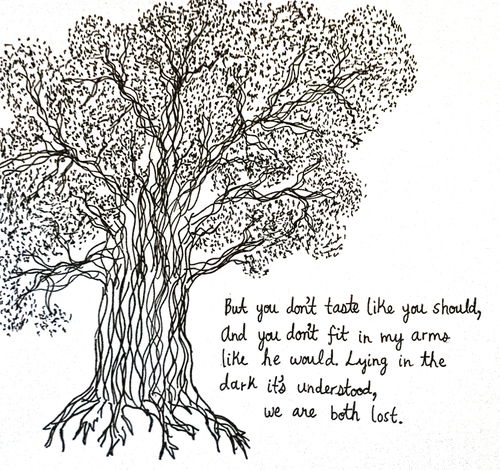 But you don't taste like you should,
And you don't fit in my arms
like he would. Lying in the
dark it's understood,
we are both lost.